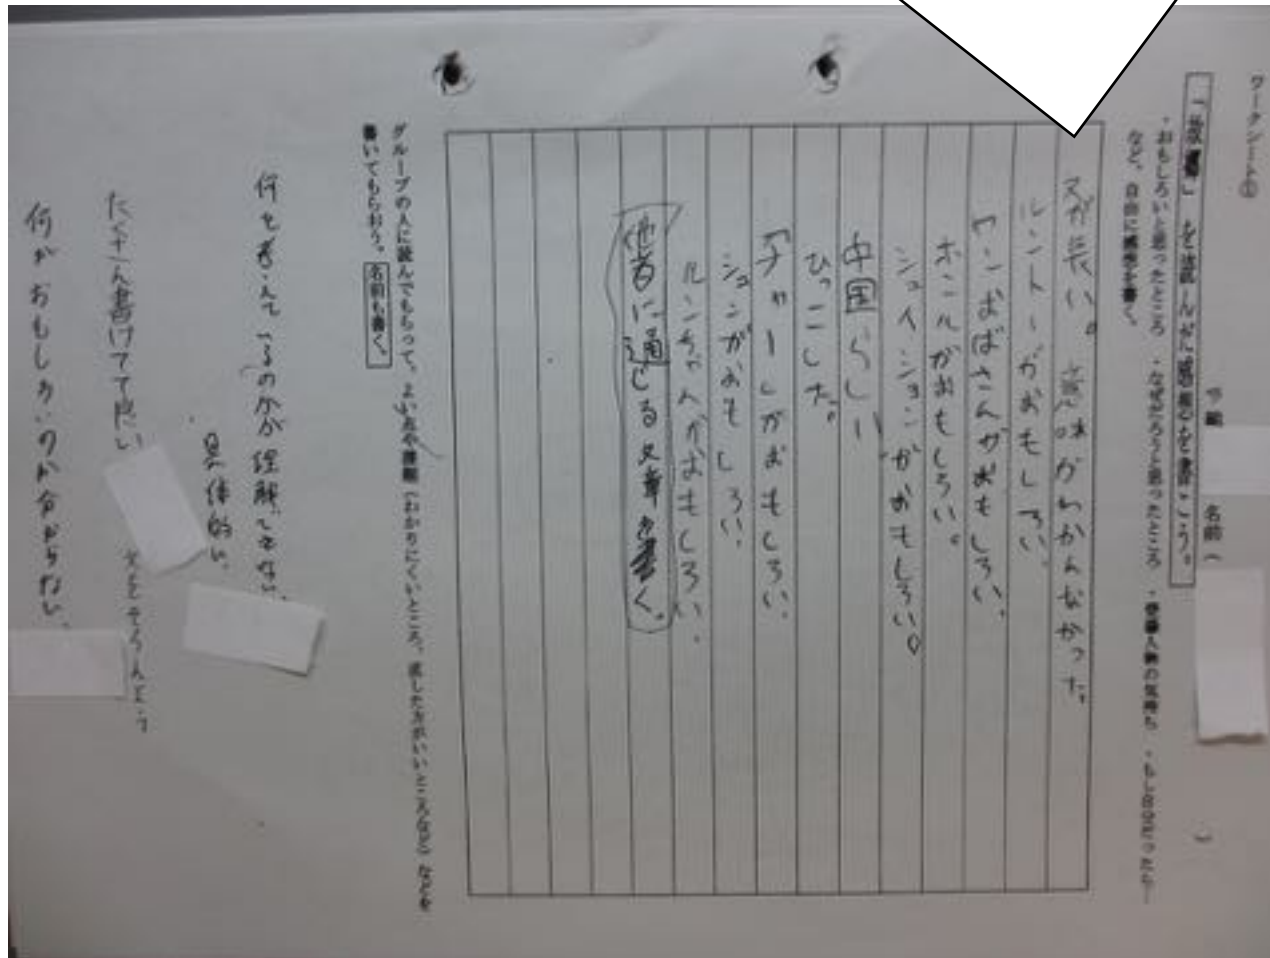 ワークシート①
「故郷」を読んだ感想を書こう。
名前(　　)
・おもしろいと思ったところ　・なぜだろうと思ったところ　・登場人物の気持ち　・もし自分だったら…
など、自由に感想を書く。
文が長い。意味がわかんなかった。
ルントーがおもしろい。
ヤンおばさんがおもしろい。
ホンルがおもしろい。
シュイションがおもしろい。
中国らしい
ひっこした。
「チャー」がおもしろい。
シュンがおもしろい。
ルンちゃんがおもしろい。
他者に通じる文章を書く。
グループの人に読んでもらって、よい点や課題(わかりにくいところ、直した方がいいところなど)などを
書いてもらおう。名前も書く。
何を考えているのかが理解できない。
具体的に
たくさん書けてて良い
何がおもしろいのか分からない。